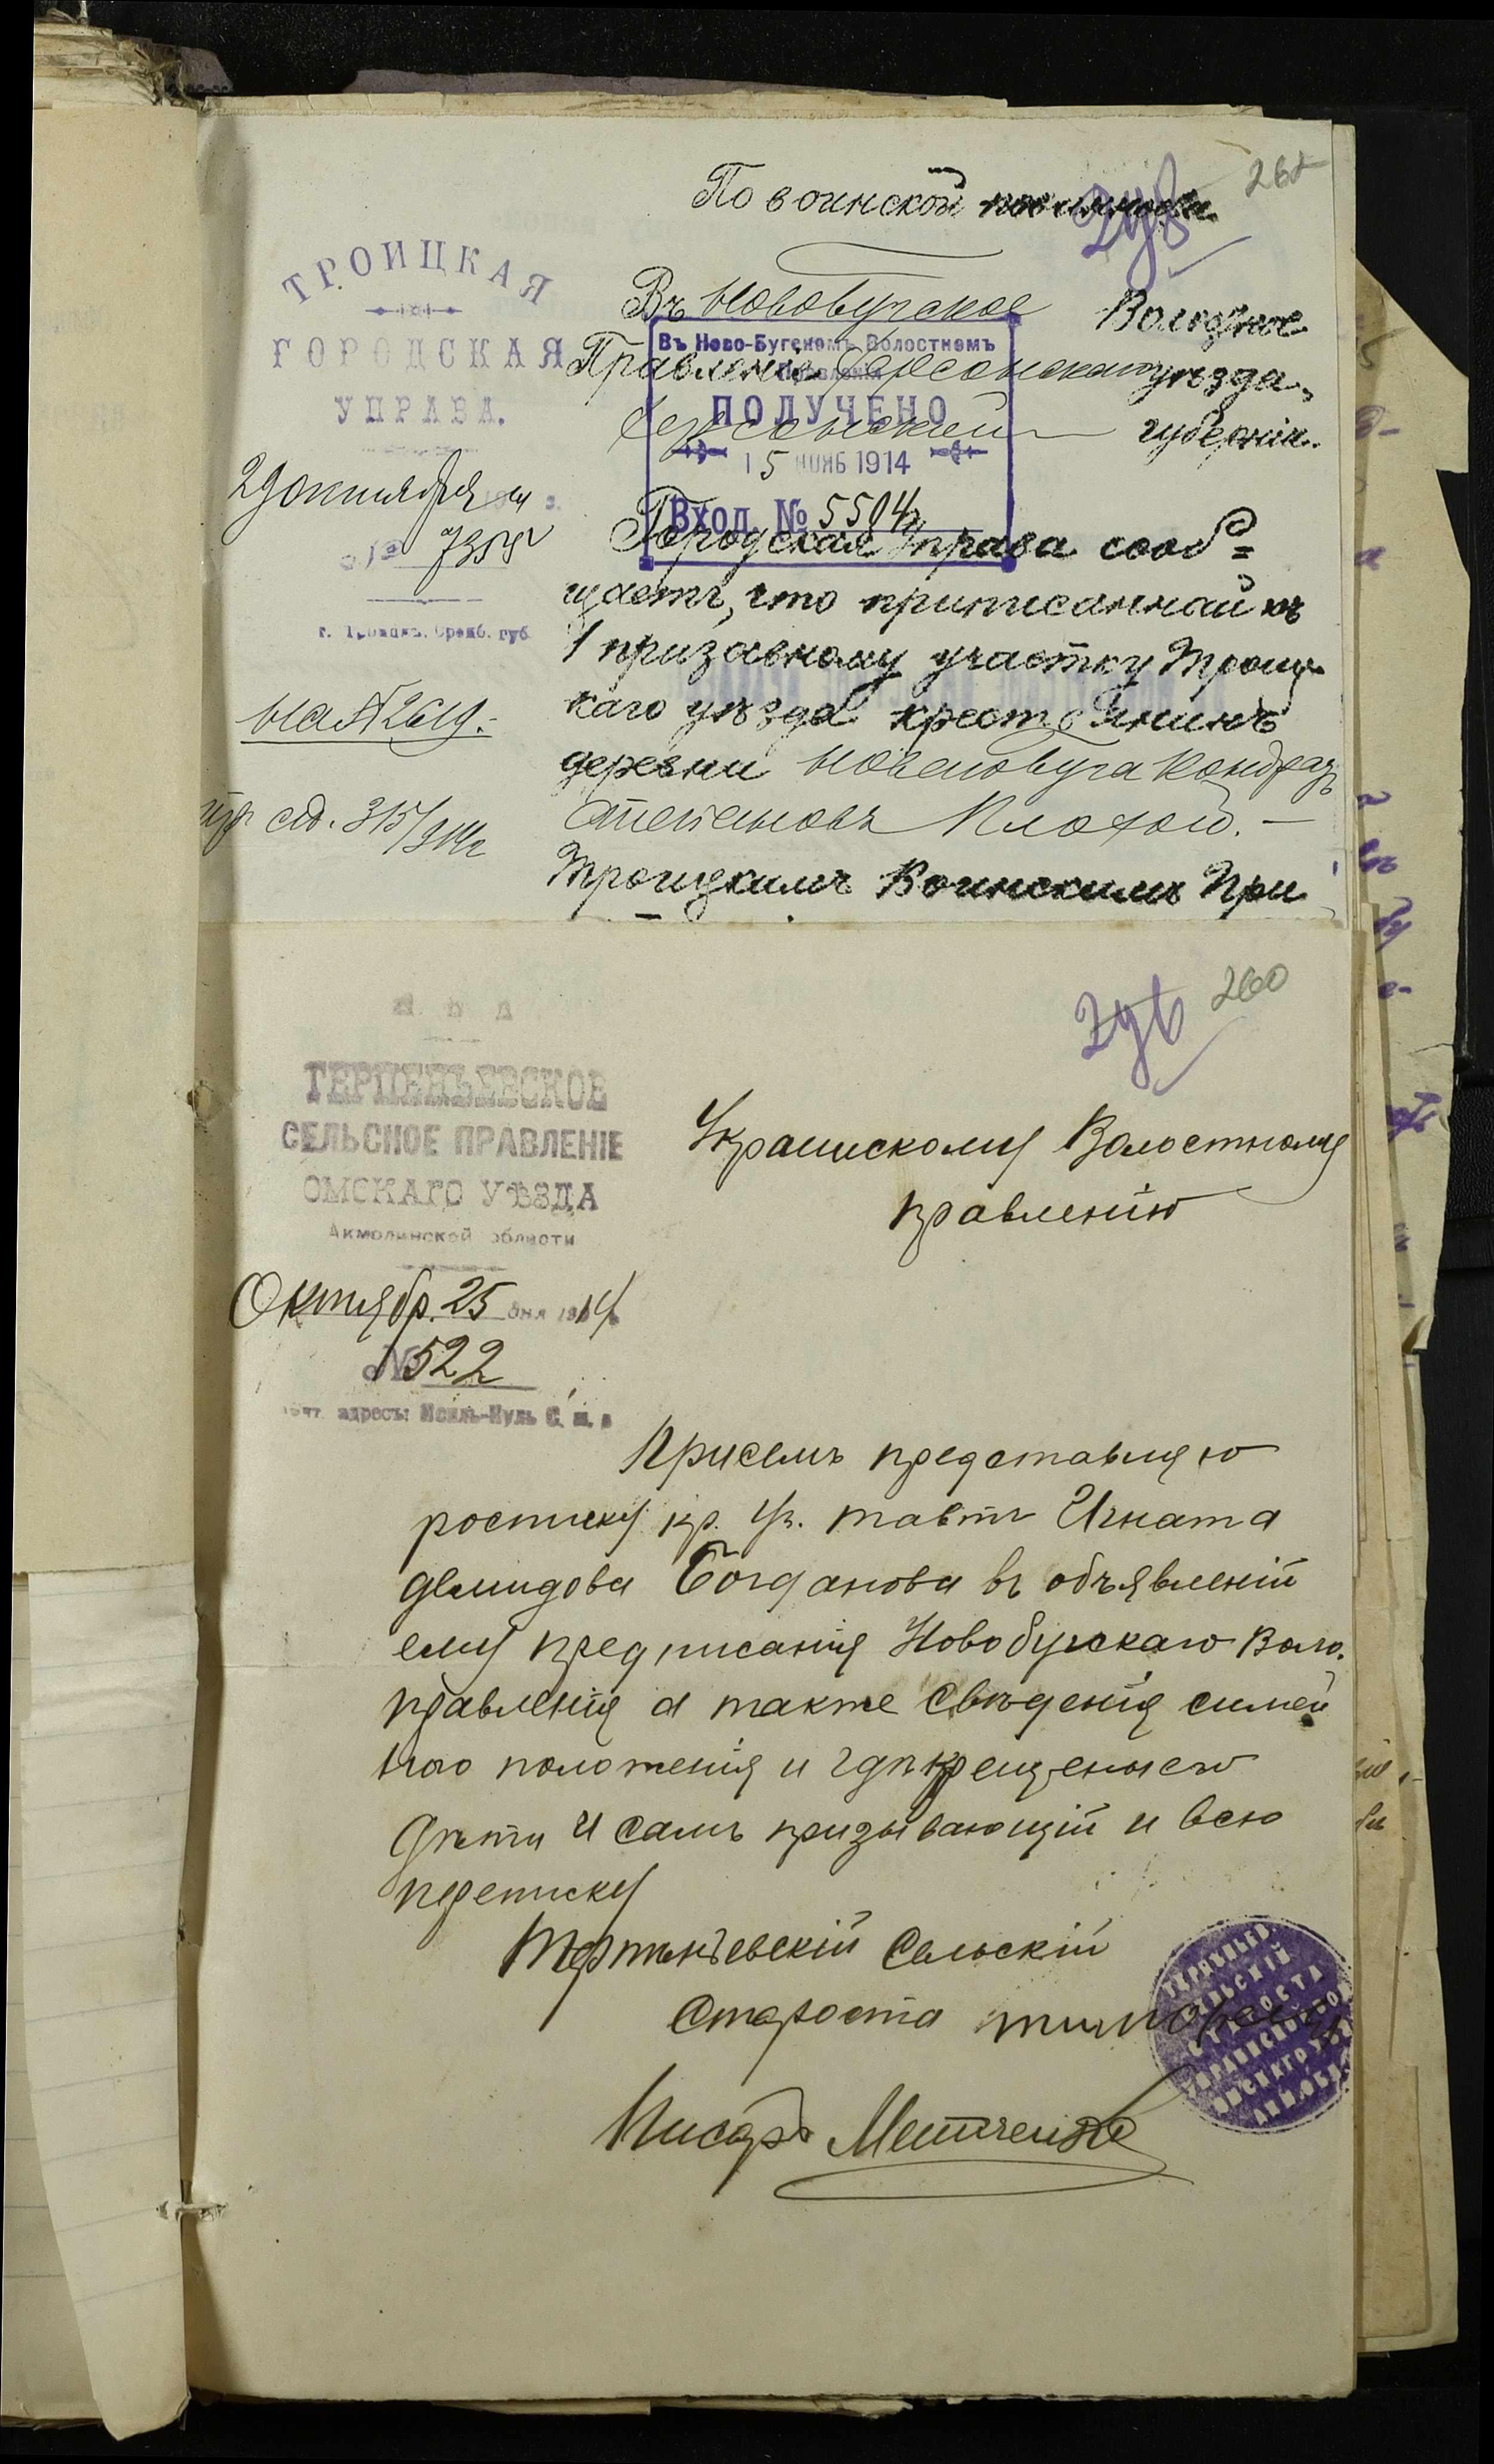 По воинской повинности
268
ТРОИЦКАЯ
ГОРОДСКАЯ
УПРАВА.
29 октября
№ 7358
г. Троицкъ, Оренб. губ.
на № 2619.
Въ Новобугское Волостное
Правленіе Херсонскаго уѣзда,
Херсонской губерніи.
Въ Ново-Бугскомъ Волостномъ
Правленіи
ПОЛУЧЕНО
15 НОЯБ 1914
Вход. № 5504
Городская Управа сооб=
щаетъ, что приписанный къ
1 призывному участку Троиц
каго уѣзда крестьянинъ
деревни Новаго Буга Кондратъ
Степановъ Плохой. —
Троицкимъ Воинскимъ При
260
М. В. Д.
ТЕРПЕНЬЕВСКОЕ
СЕЛЬСКОЕ ПРАВЛЕНІЕ
ОМСКАГО УѢЗДА
Акмолинской области
Октябр. 25 дня 1914
№ 522
адресъ: Исиль-Куль С. ж. д
Украинскому Волостному
правленію
Присемъ представляю
росписку кр. Уч. Игната
Демидова Богданова въ объявленій
ему предписанія Новобугскаго Воло.
правленія а также свѣденія симей
ного положенія и гдѣ крещены его
дѣти и самъ призывающій и всю
переписку
Терпѣнѣевскій Сельскій
Староста
Писарь